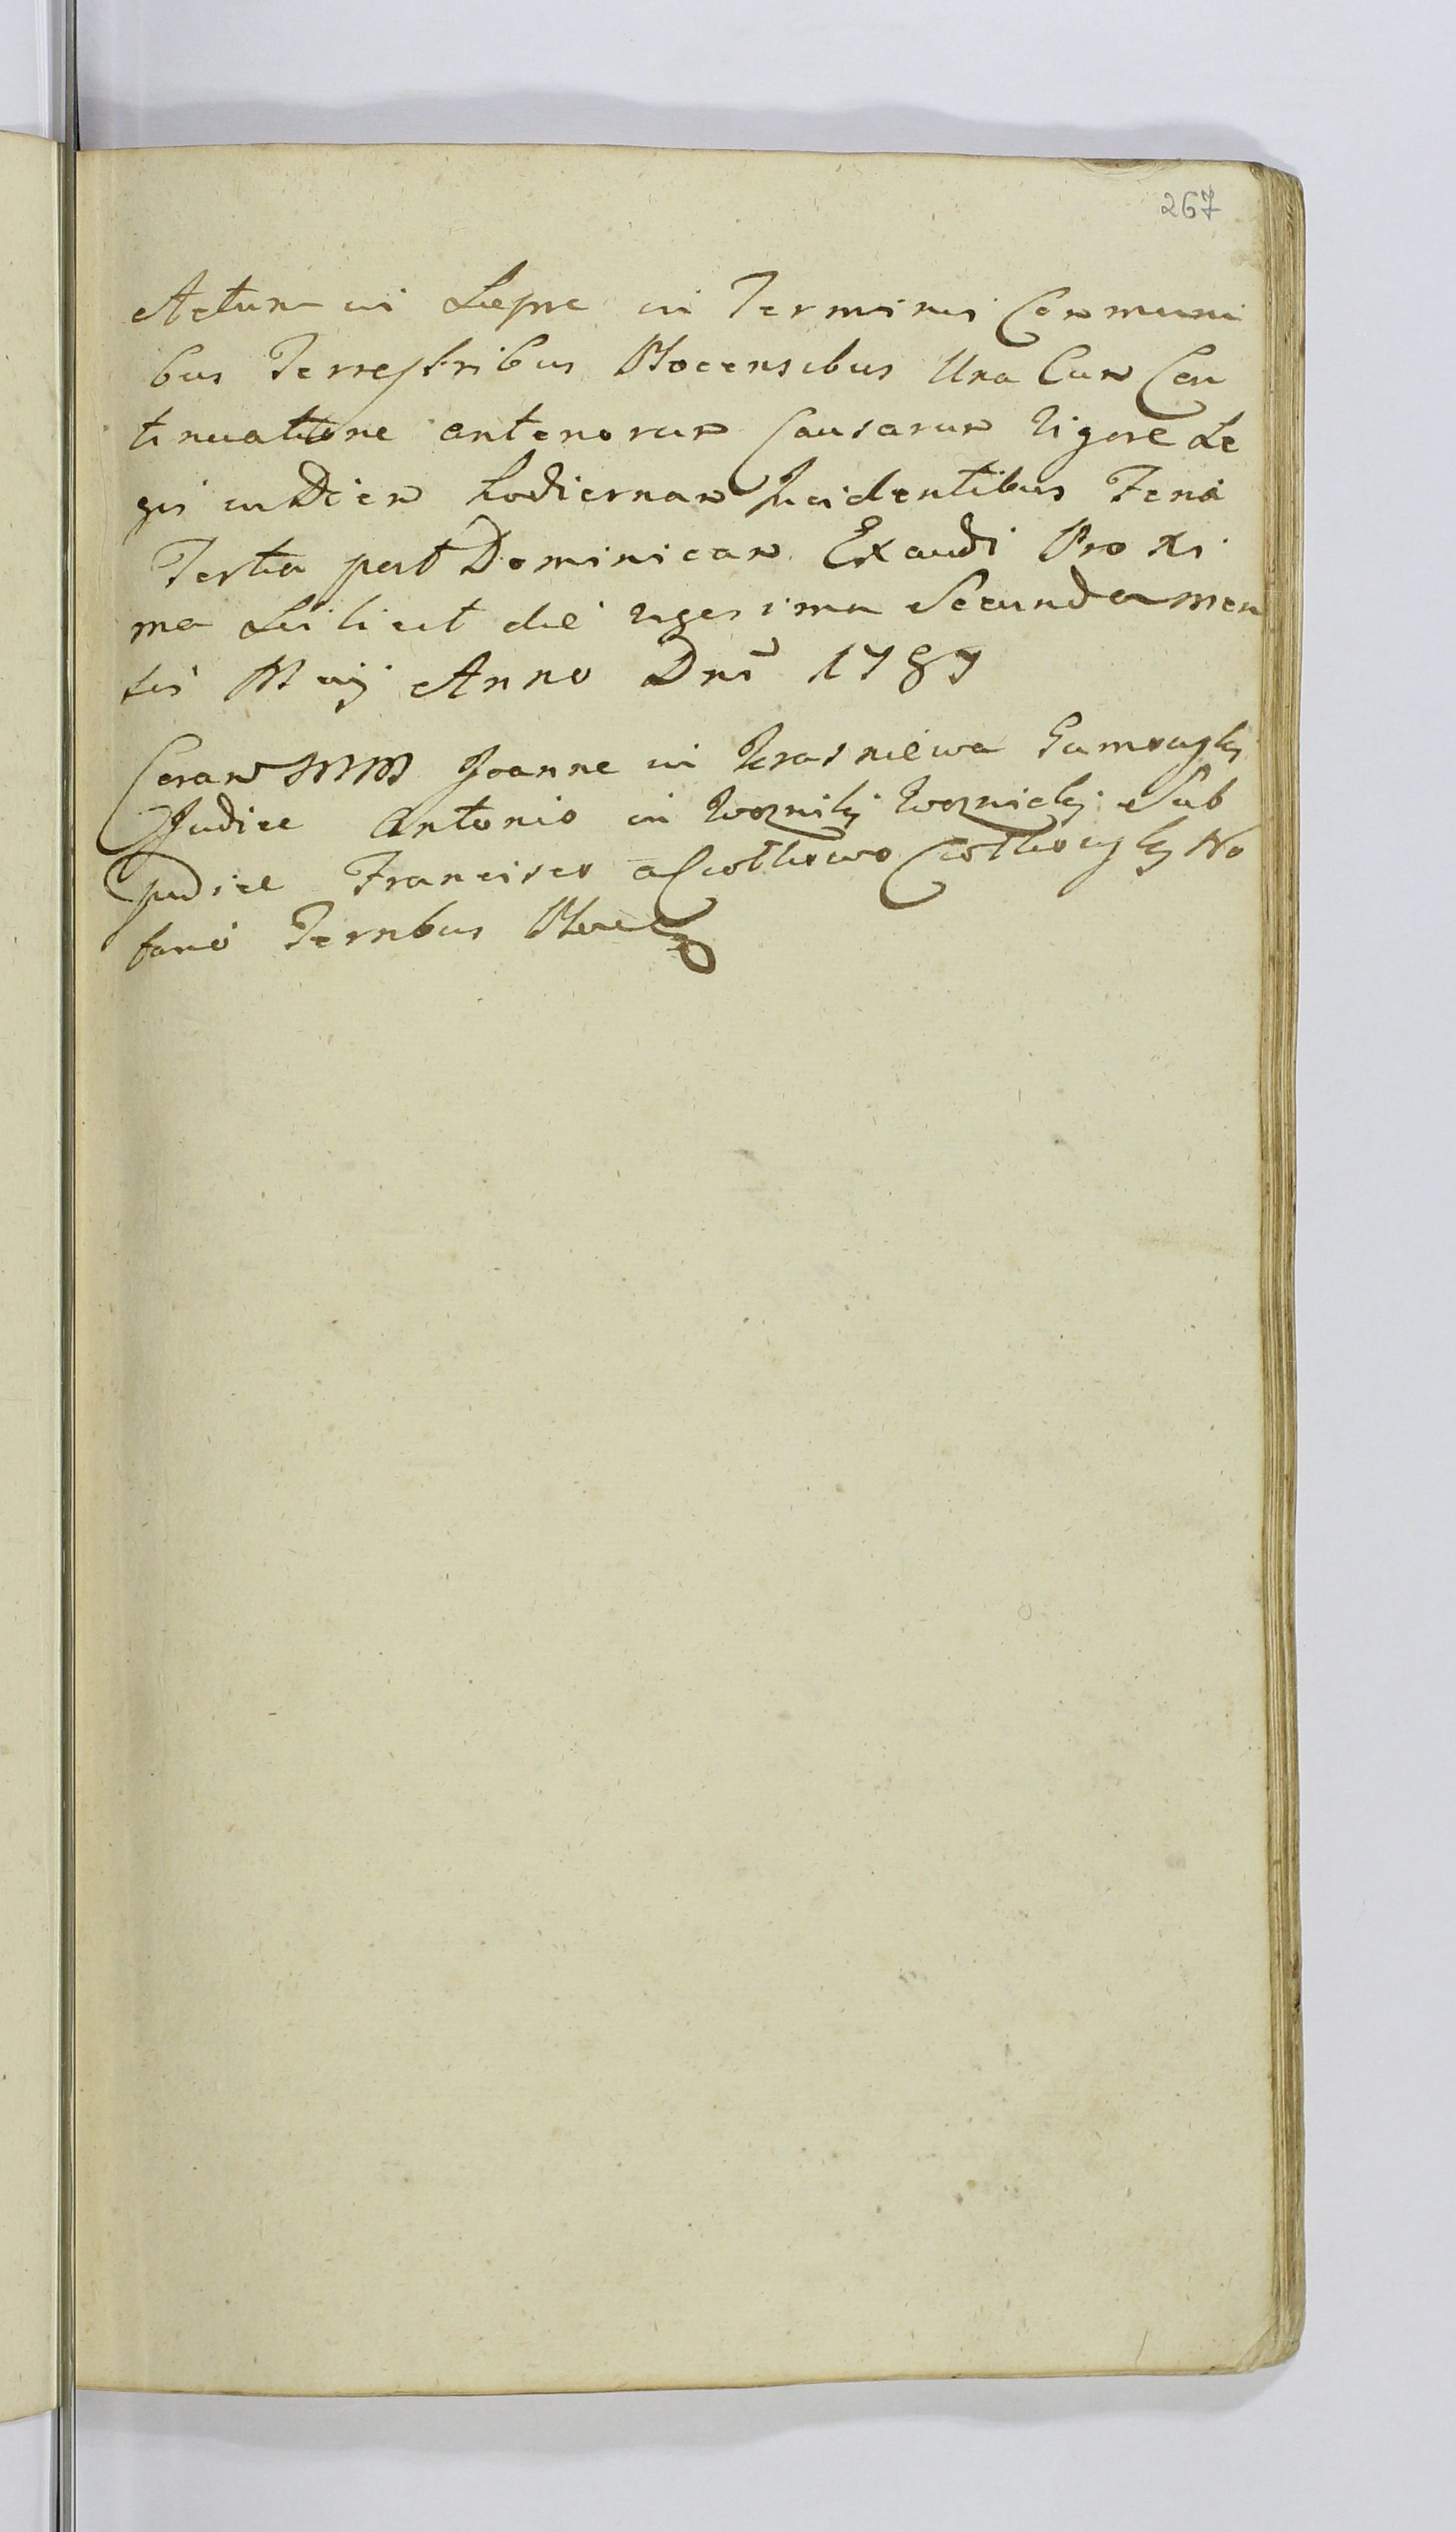 267
Actum in Lepno in Terminis Communi
bus Terrestribus Plocensibus Una Cum Con
tinuatione anteriorum Causarum Vigore Le
gis in Diem hodiernam Incidentibus Feria
Tertia post Dominicam Exaudi Proxi
ma Scilicet die vigesima Secunda men
sis Maij Anno Dni 1787
Coram MM Joanne in
Judice Antonio in Woznicki Sub
judice Francisco a No
tario Ternbus